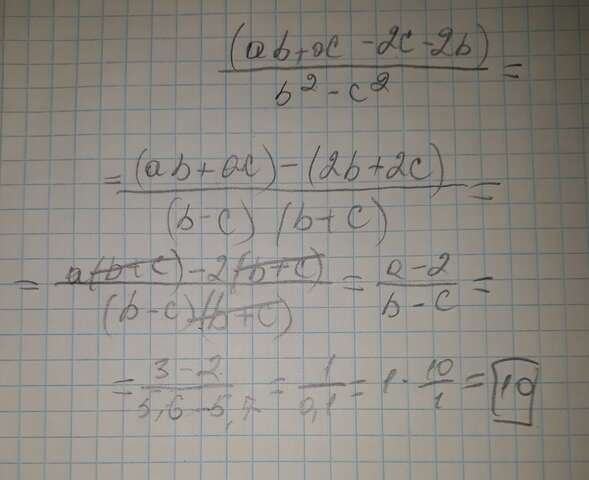 (ab+ac-2c-2b)/(b²-c²) =
= ((ab+ac)-(2b+2c))/((b-c)(b+c)) =
= (a(b+c)-2(b+c))/((b-c)(b+c)) = (a-2)/(b-c) =
= (3-2)/(5,6-5,7) = 1/0,1 = 1·10/1 = 10